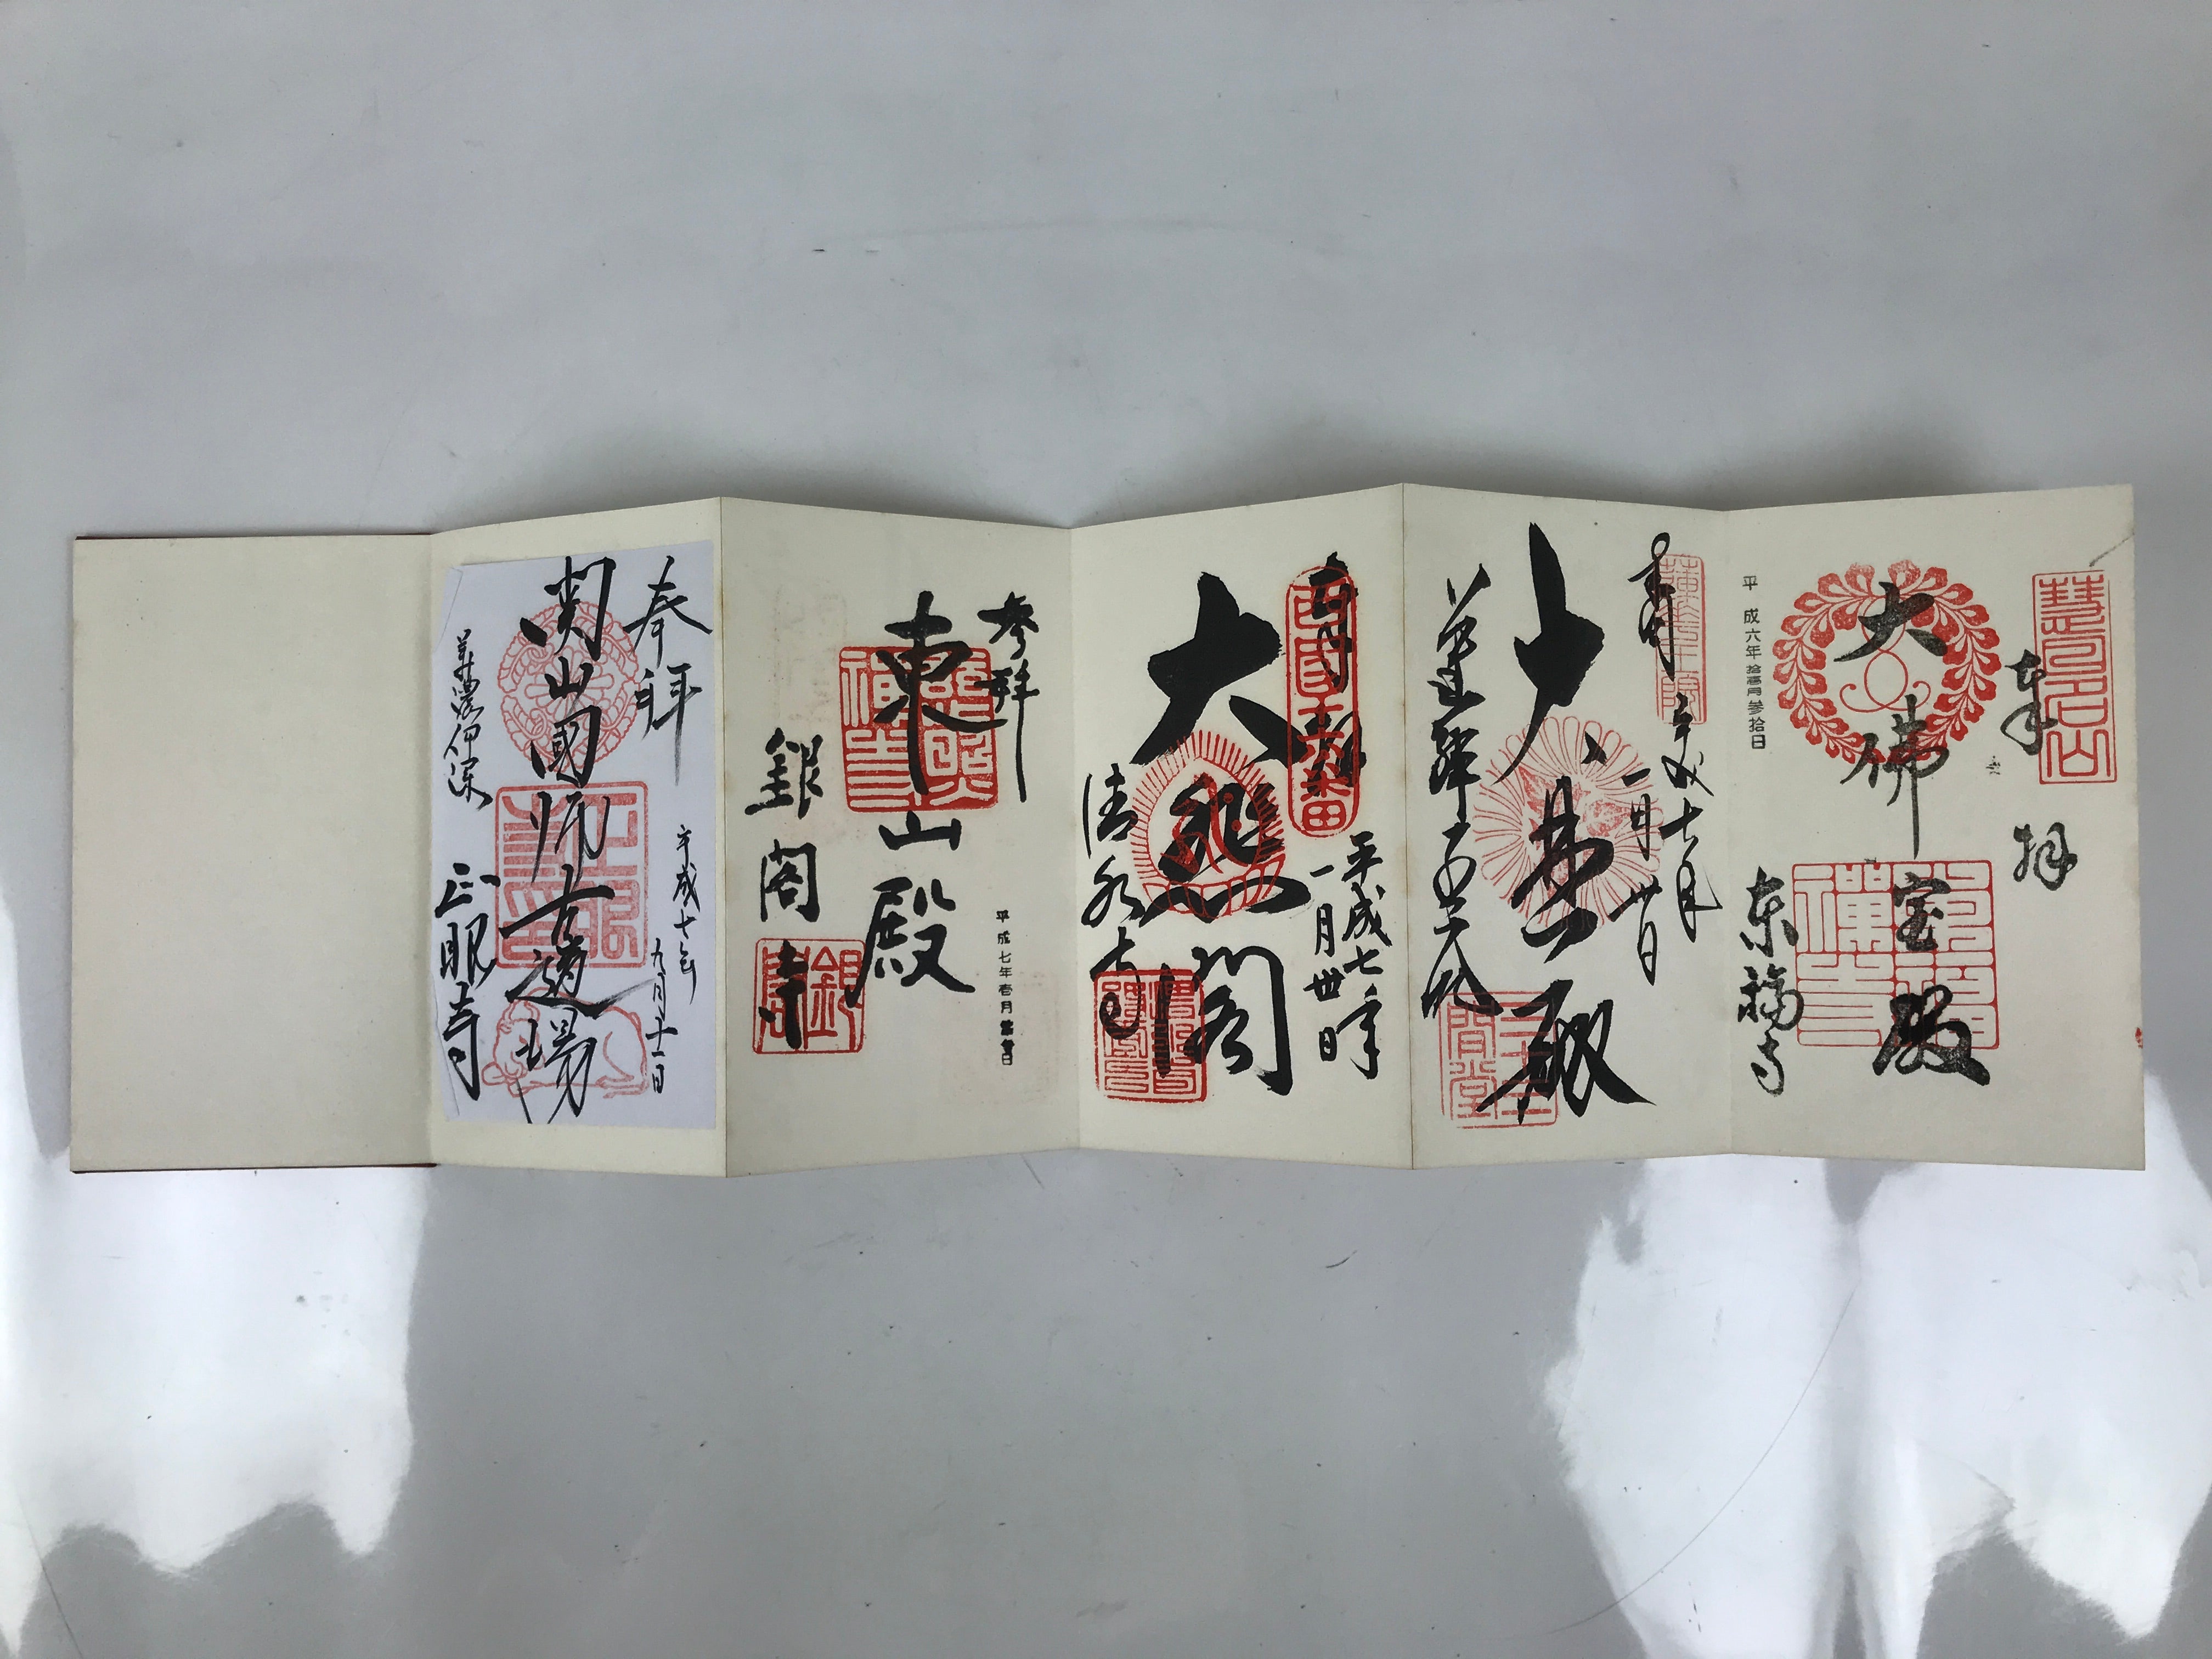 奉拝
慧日山
大佛宝殿
東福寺
平成六年拾壱月参拾日
奉拝
平成七年
一月卅日
大悲殿
蓮華王院
三十三間堂
奉拝
西国十六番
平成七年
一月卅日
大悲閣
清水寺
参拝
東山殿
銀閣寺
銀閣寺
平成七年壱月
奉拝
平成七年
九月十一日
関山國師古道場
美濃伊深
正眼寺